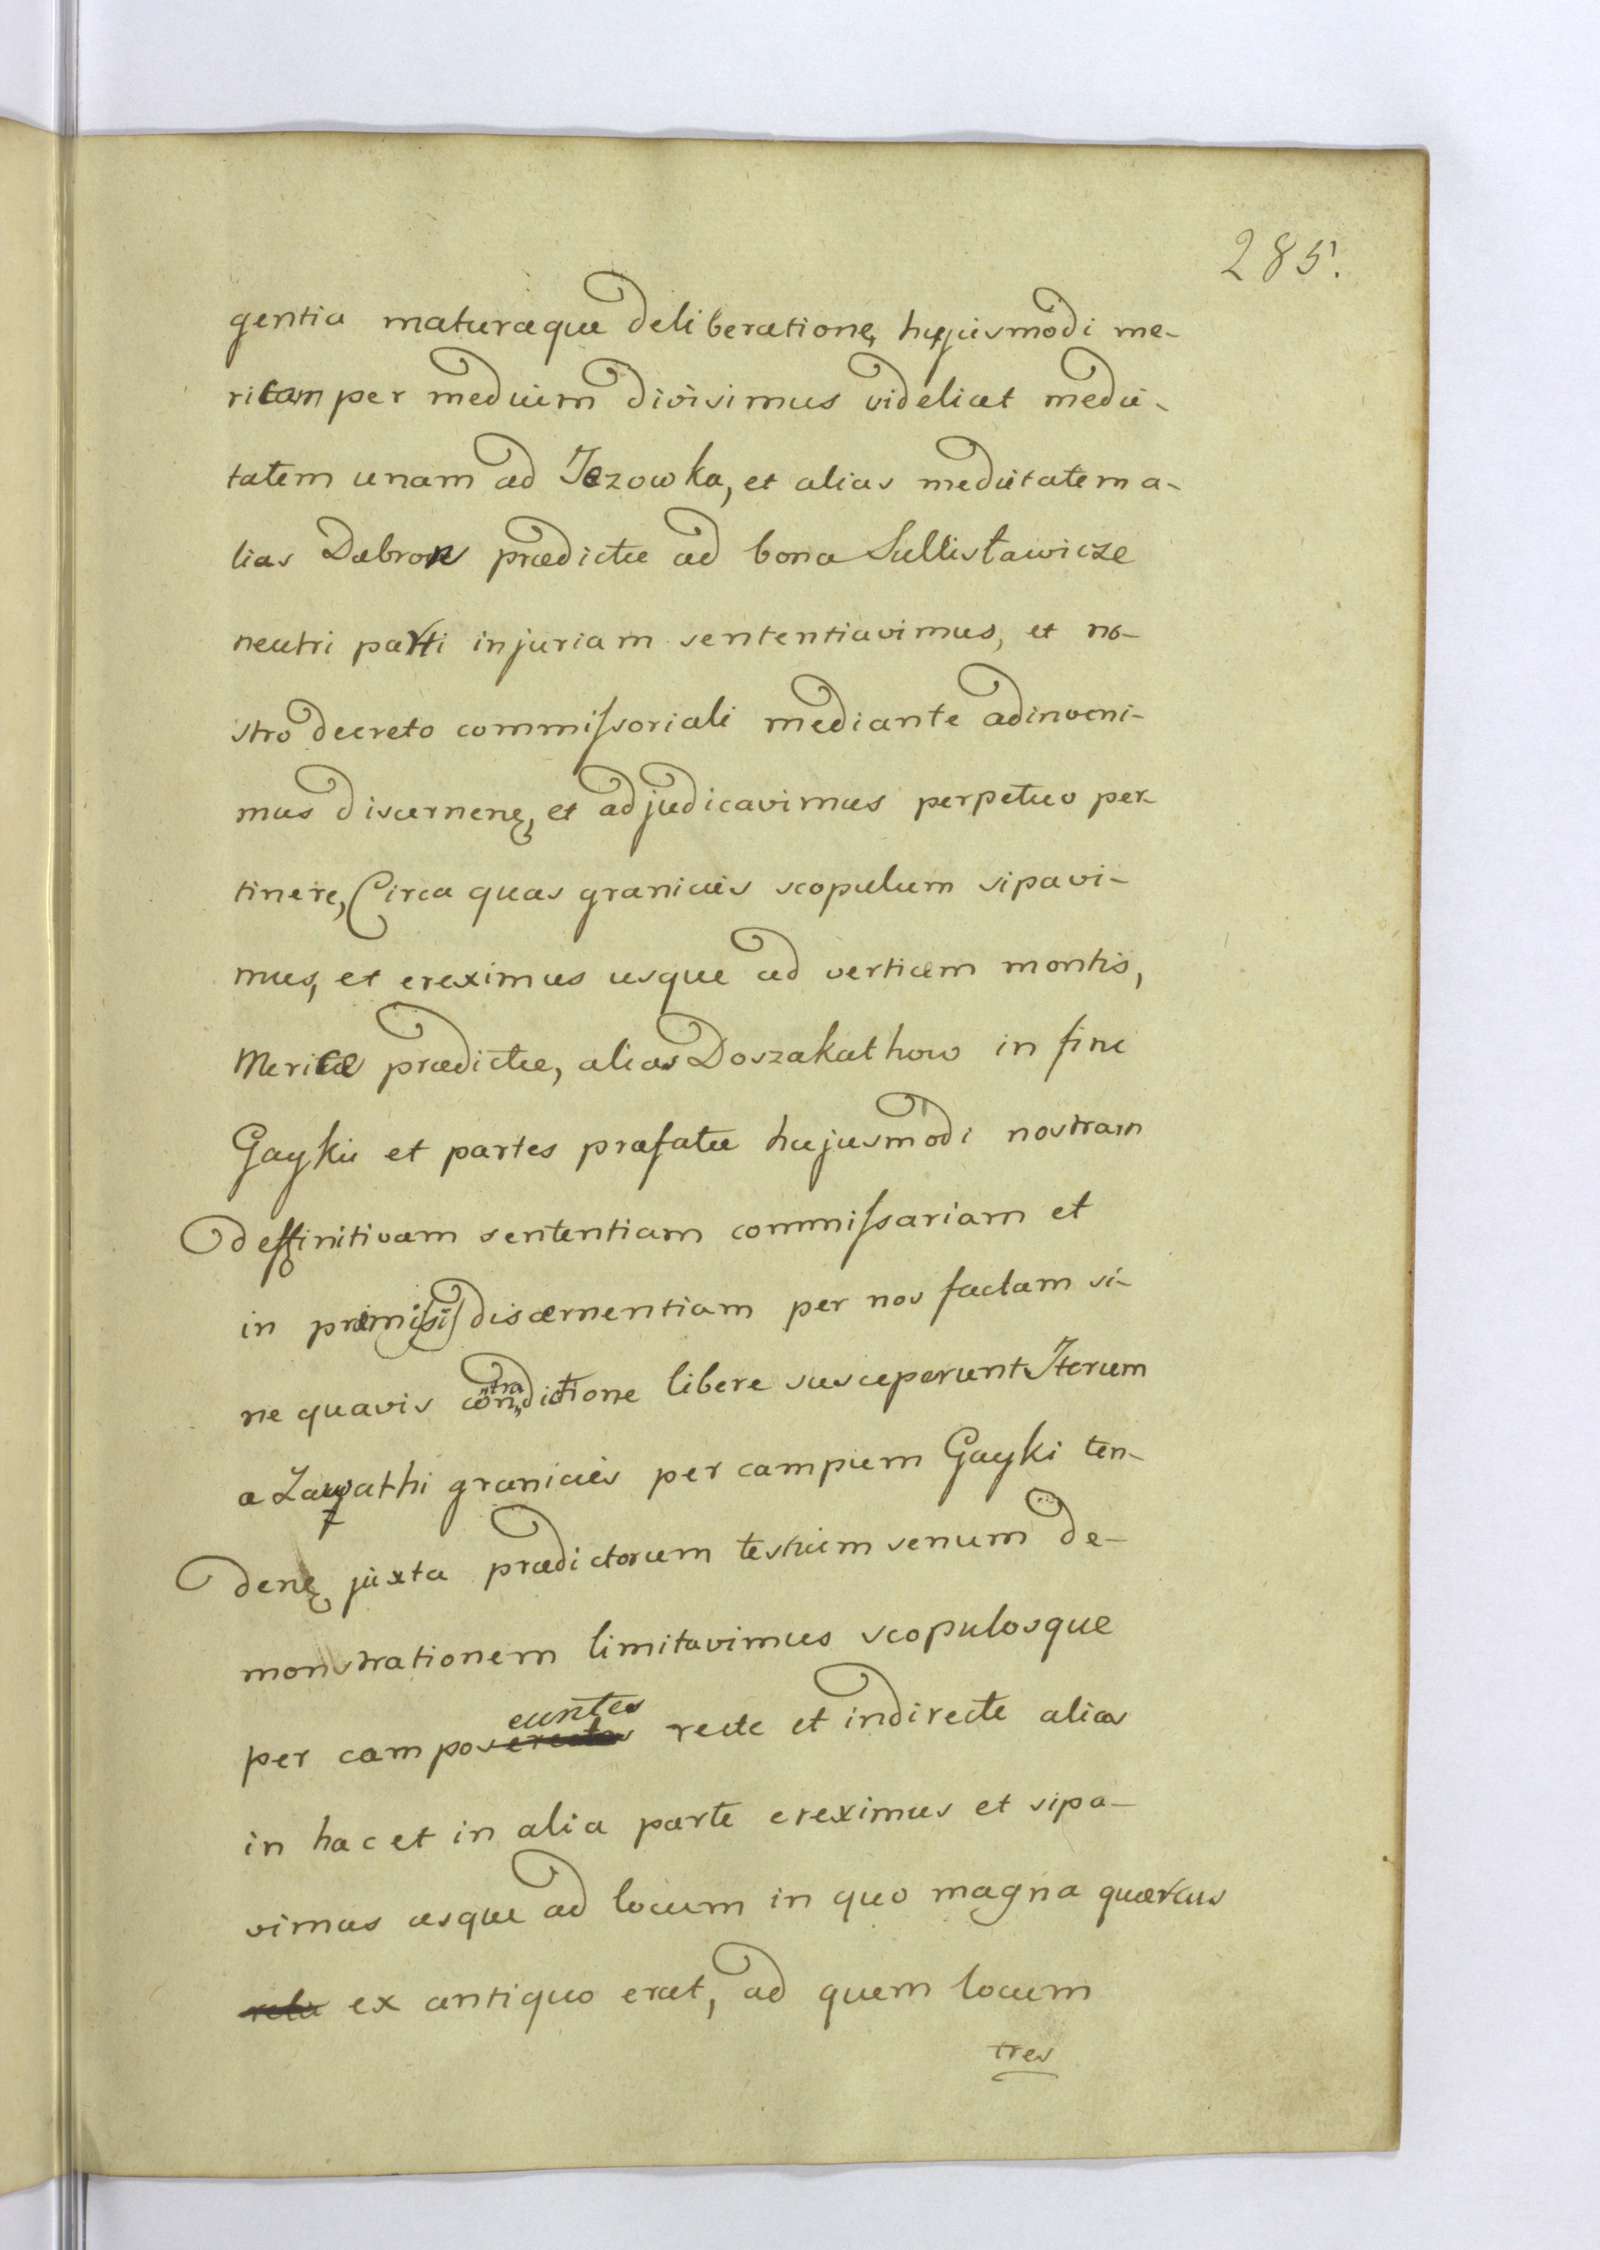 285.
gentia maturaque deliberatione, hujusmodi me-
ricam per medium divisimus videlicet medie-
tatem unam ad Jezowka, et alias medietatem a-
lias Dabrowe prædictæ ad bona Sullisławicze
neutri parti injuriam sententiavimus, et no-
stro decreto commiſsoriali mediante adinveni-
mus discernenę, et adjudicavimus perpetuo per-
tinere, Circa quas granicies scopulum sipavi-
mus, et ereximus usque ad verticem montis,
Mericæ prædictæ, alias Doszakathow in fine
Gaykii et partes præfatæ hujusmodi nostram
deffinitivam sententiam commiſsariam et
in præmiſsis discernentiam per nos factam si-
ne quavis contradictione libere susceperunt Iterum
a granicies per campum Gayki ten-
denę juxta prædictorum testium senum de-
monstrationem limitavimus scopulosque
per campos euntes recte et indirecte alias
in hac et in alia parte ereximus et sipa-
vimus usque ad locum in quo magna quercus
ex antiquo erat, ad quem locum
tres